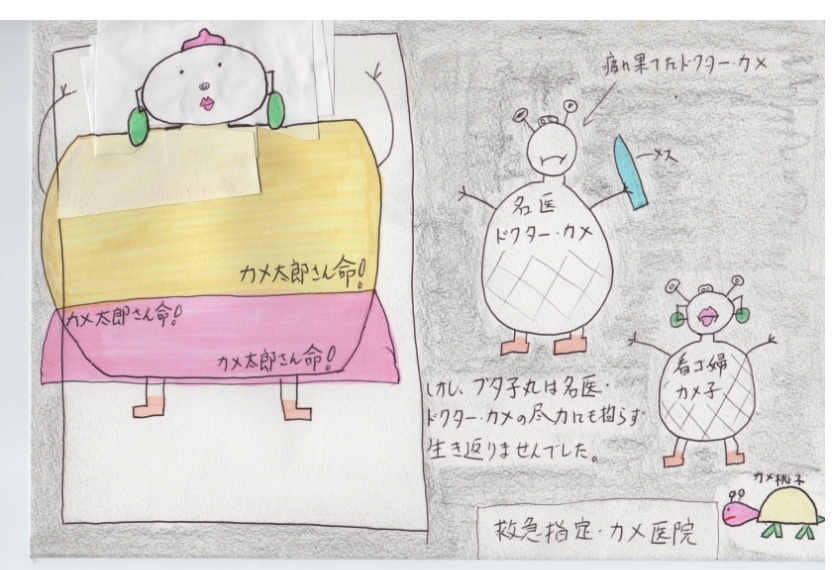 カメ太郎さん命!
カメ太郎さん命!
カメ太郎さん命!
疲れ果てたドクター・カメ
メス
名医
ドクター・カメ
看護婦
カメ子
しかし、ブタ子丸は名医・
ドクター・カメの尽力にも拘らず
生き返りませんでした。
カメ桃子
救急指定・カメ医院